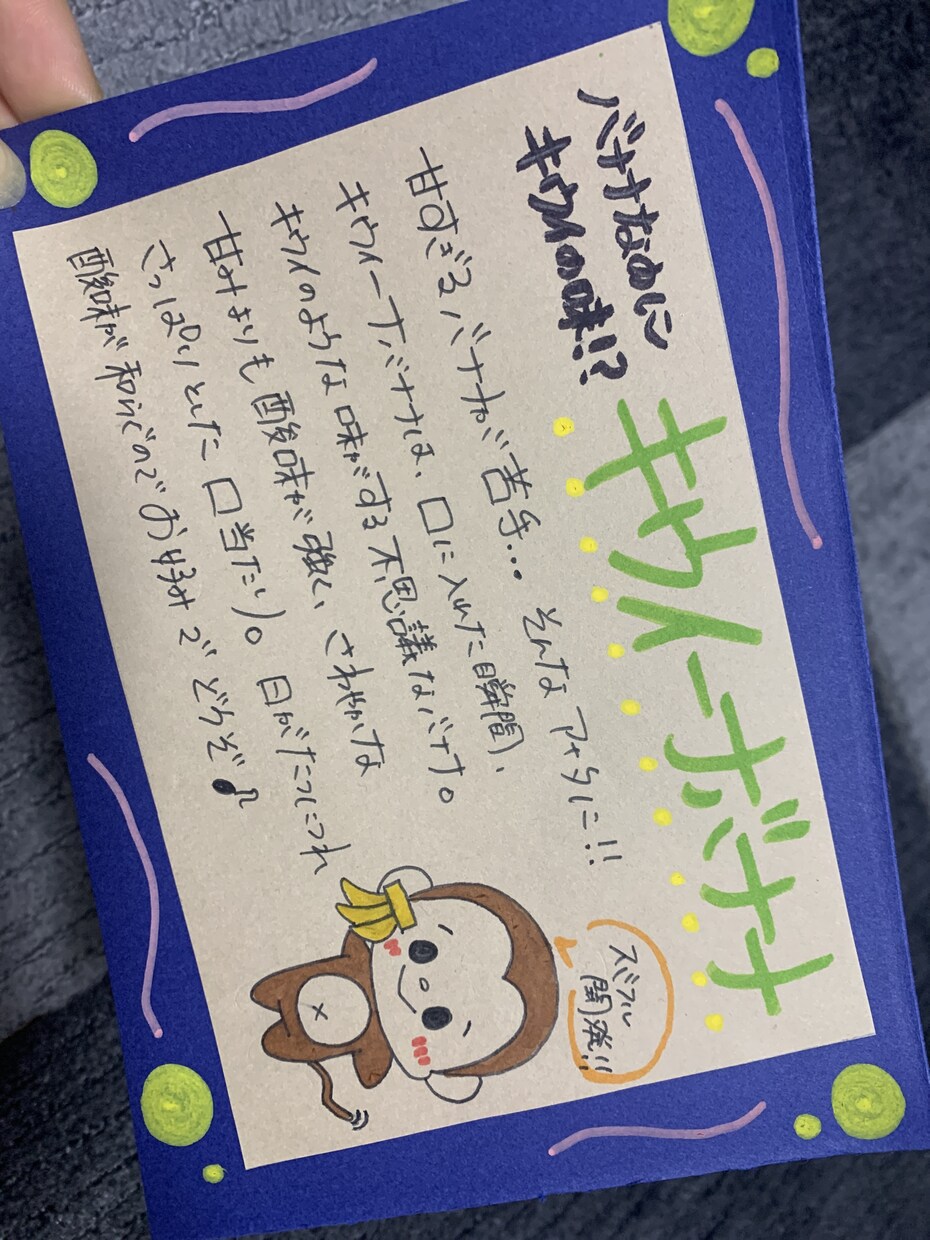 バナナなのに
キウイの味!?
キウイーナバナナ
甘すぎるバナナが苦手… そんなアナタに!!
キウイーナバナナは、口に入れた瞬間、
キウイのような味がする不思議なバナナ。
甘みよりも酸味が強く、さわやかな
さっぱりとした口当たり。日がたつにつれ
酸味が和らぐのでお好みでどうぞ♪
スミフル
開発!!